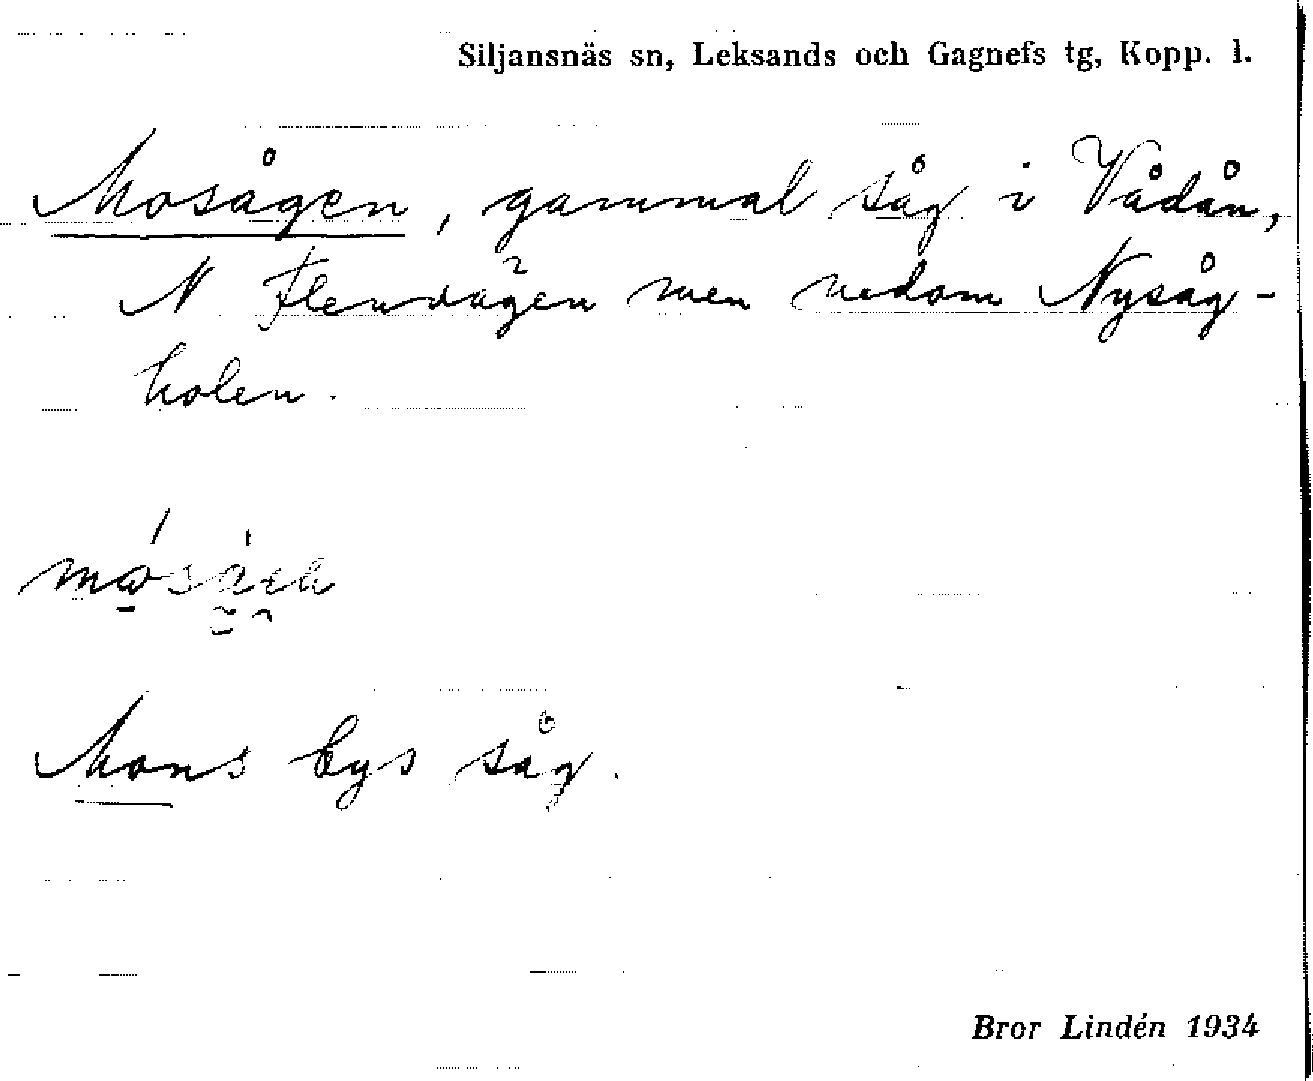 Siljansnäs sn, Leksands och Gagnefs tg, Kopp. l.
Mosågen, gammal såg i Vådån,
N men nedom Nysåg-
holen.
Mons bys såg.
Bror Lindén 1934